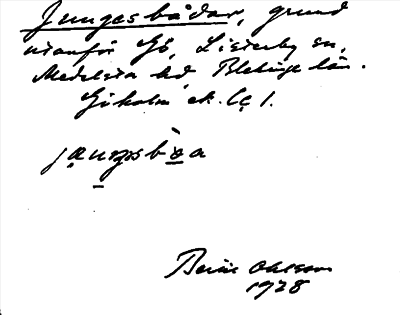 Jungesbådar, grund
utanför Gö, Listerby sn,
Medelsta hd, Blekinge län.
Göholm ek. bl. 1.
Bertil Ohlsson
1928